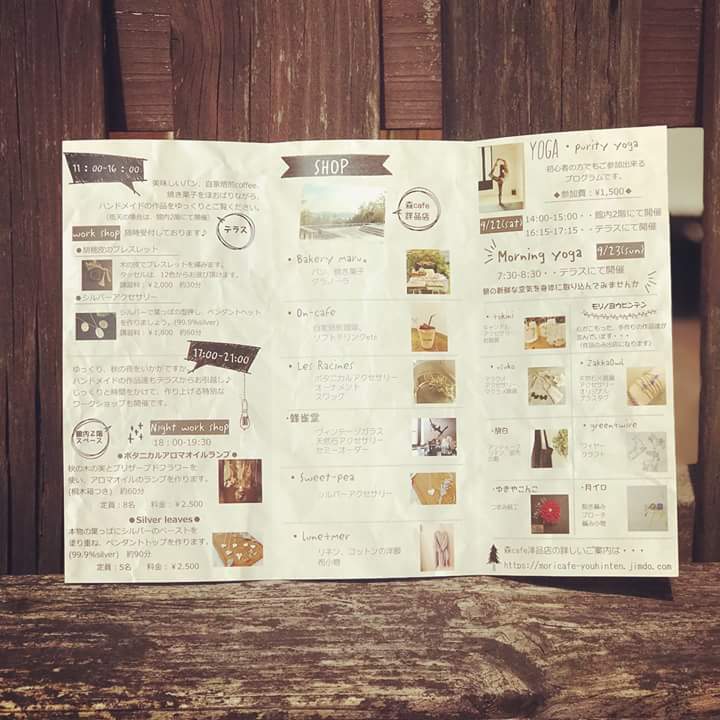 11：00-16：00
美味しいパン、自家焙煎coffee、
焼き菓子をほおばりながら、
ハンドメイドの作品をゆっくりとご覧ください。
(雨天の場合は、館内2階にて開催)
テラス
work shop 随時受付しております♪
●胡桃皮のブレスレット
木の皮でブレスレットを編みます。
タッセルは、12色からお選び頂けます。
講習料：¥2,000 約30分
●シルバーアクセサリー
シルバーで葉っぱの型押し、ペンダントヘット
を作りましょう。(99.9%silver)
講習料：¥1,800 約60分
17:00-21:00
ゆっくり、秋の夜をいかがですか
ハンドメイドの作品達もテラスからお引越し♪
じっくりと時間をかけて、作り上げる特別な
ワークショップも開催です。
館内2階
スペース
Night work shop
18：00-19:30
●ボタニカルアロマオイルランプ●
秋の木の実とプリザーブドフラワーを
使い、アロマオイルのランプを作ります。
(桐木箱つき) 約60分
定員：8名 料金：¥2,500
●Silver leaves●
本物の葉っぱにシルバーのペーストを
塗り重ね、ペンダントトップを作ります。
(99.9%silver) 約90分
定員：5名 料金：¥2,500
SHOP
森cafe
洋品店
• Bakery maru。
パン、焼き菓子
グラノーラ
• On-cafe
自家焙煎珈琲、
ソフトドリンクetc
• Les Racines
ボタニカルアクセサリー
オーナメント
スワッグ
• 蜂雀堂
ヴィンテージガラス
天然石アクセサリー
セミオーダー
• Sweet-pea
シルバーアクセサリー
• lune+mer
リネン、コットンの洋服
布小物
YOGA・purity yoga
初心者の方でもご参加出来る
プログラムです。
◆参加費：¥1,500◆
9/22(sat)
14:00-15:00・・館内2階にて開催
16:15-17:15・・テラスにて開催
Morning yoga 9/23(sun)
7:30-8:30・・テラスにて開催
朝の新鮮な空気を身体に取り込んでみませんか
モリノヨウヒンテン
心がこもった、手作りの作品達が
並んでいます・・・
(作品のみ出店になります)
アクセサリー
• ZakkaOwl
天然石
アクセサリー
• greentwire
ワイヤー
クラフト
• ゆきやこんこ
つまみ細工
• 月イロ
ブローチ
編み小物
森cafe洋品店の詳しいご案内は・・・
https://moricafe-youhinten.jimdo.com